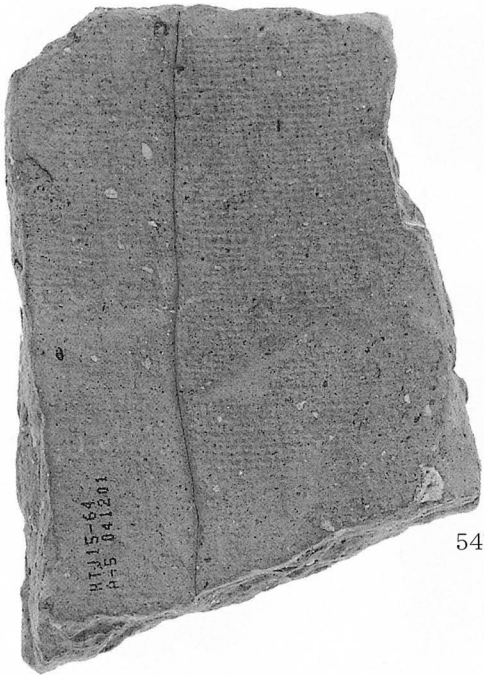 HTJ15-64
A-5 041201
54